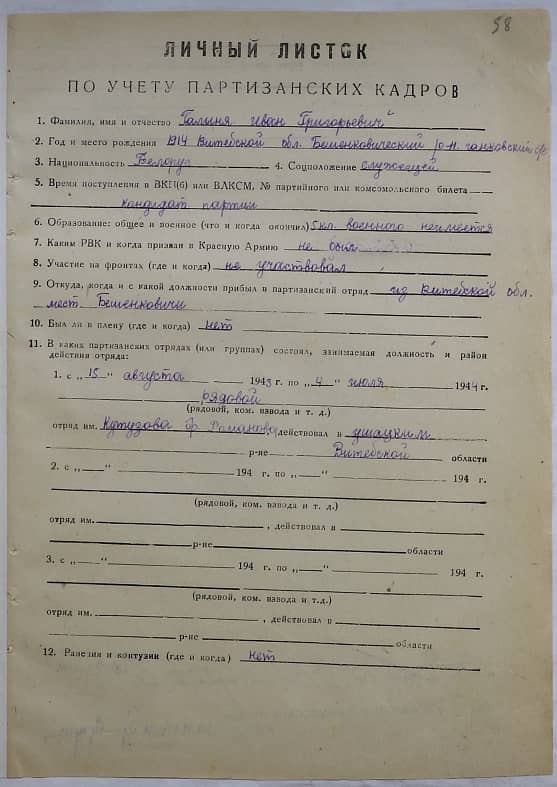 58
ЛИЧНЫЙ ЛИСТОК
ПО УЧЕТУ ПАРТИЗАНСКИХ КАДРОВ
1. Фамилия, имя и отчество Галыня Иван Григорьевич
2. Год и место рождения 1914 Витебской обл. Бешенковический р-н.
3. Национальность Белорус 4. Соцположение служащей
5. Время поступления в ВКП(б) или ВЛКСМ, № партийного или комсомольского билета
Кандидат партии
6. Образование: общее и военное (что и когда окончил) 5 кл. военного неимеется
7. Каким РВК и когда призван в Красную Армию не был
8. Участие на фронтах (где и когда) не участвовал
9. Откуда, когда и с какой должности прибыл в партизанский отряд из Витебской обл.
мест. Бешенковичи
10. Был ли в плену (где и когда) нет
11. В каких партизанских отрядах (или группах) состоял, занимаемая должность и район
действия отряда:
1. с „15“ августа 1943 г. по „4“ июля 1944 г.
рядовой
(рядовой, ком. взвода и т. д.)
отряд им. Кутузова бр. Романова действовал в ушацким
р-не Витебской области
2. с „—“ 194 г. по „—“ 194 г.
(рядовой, ком. взвода и т. д.)
отряд им. , действовал в
р-не области
3. с „—“ 194 г. по „—“ 194 г.
(рядовой, ком. взвода и т.д.)
отряд им. , действовал в
р-не области
12. Ранения и контузии (где и когда) нет